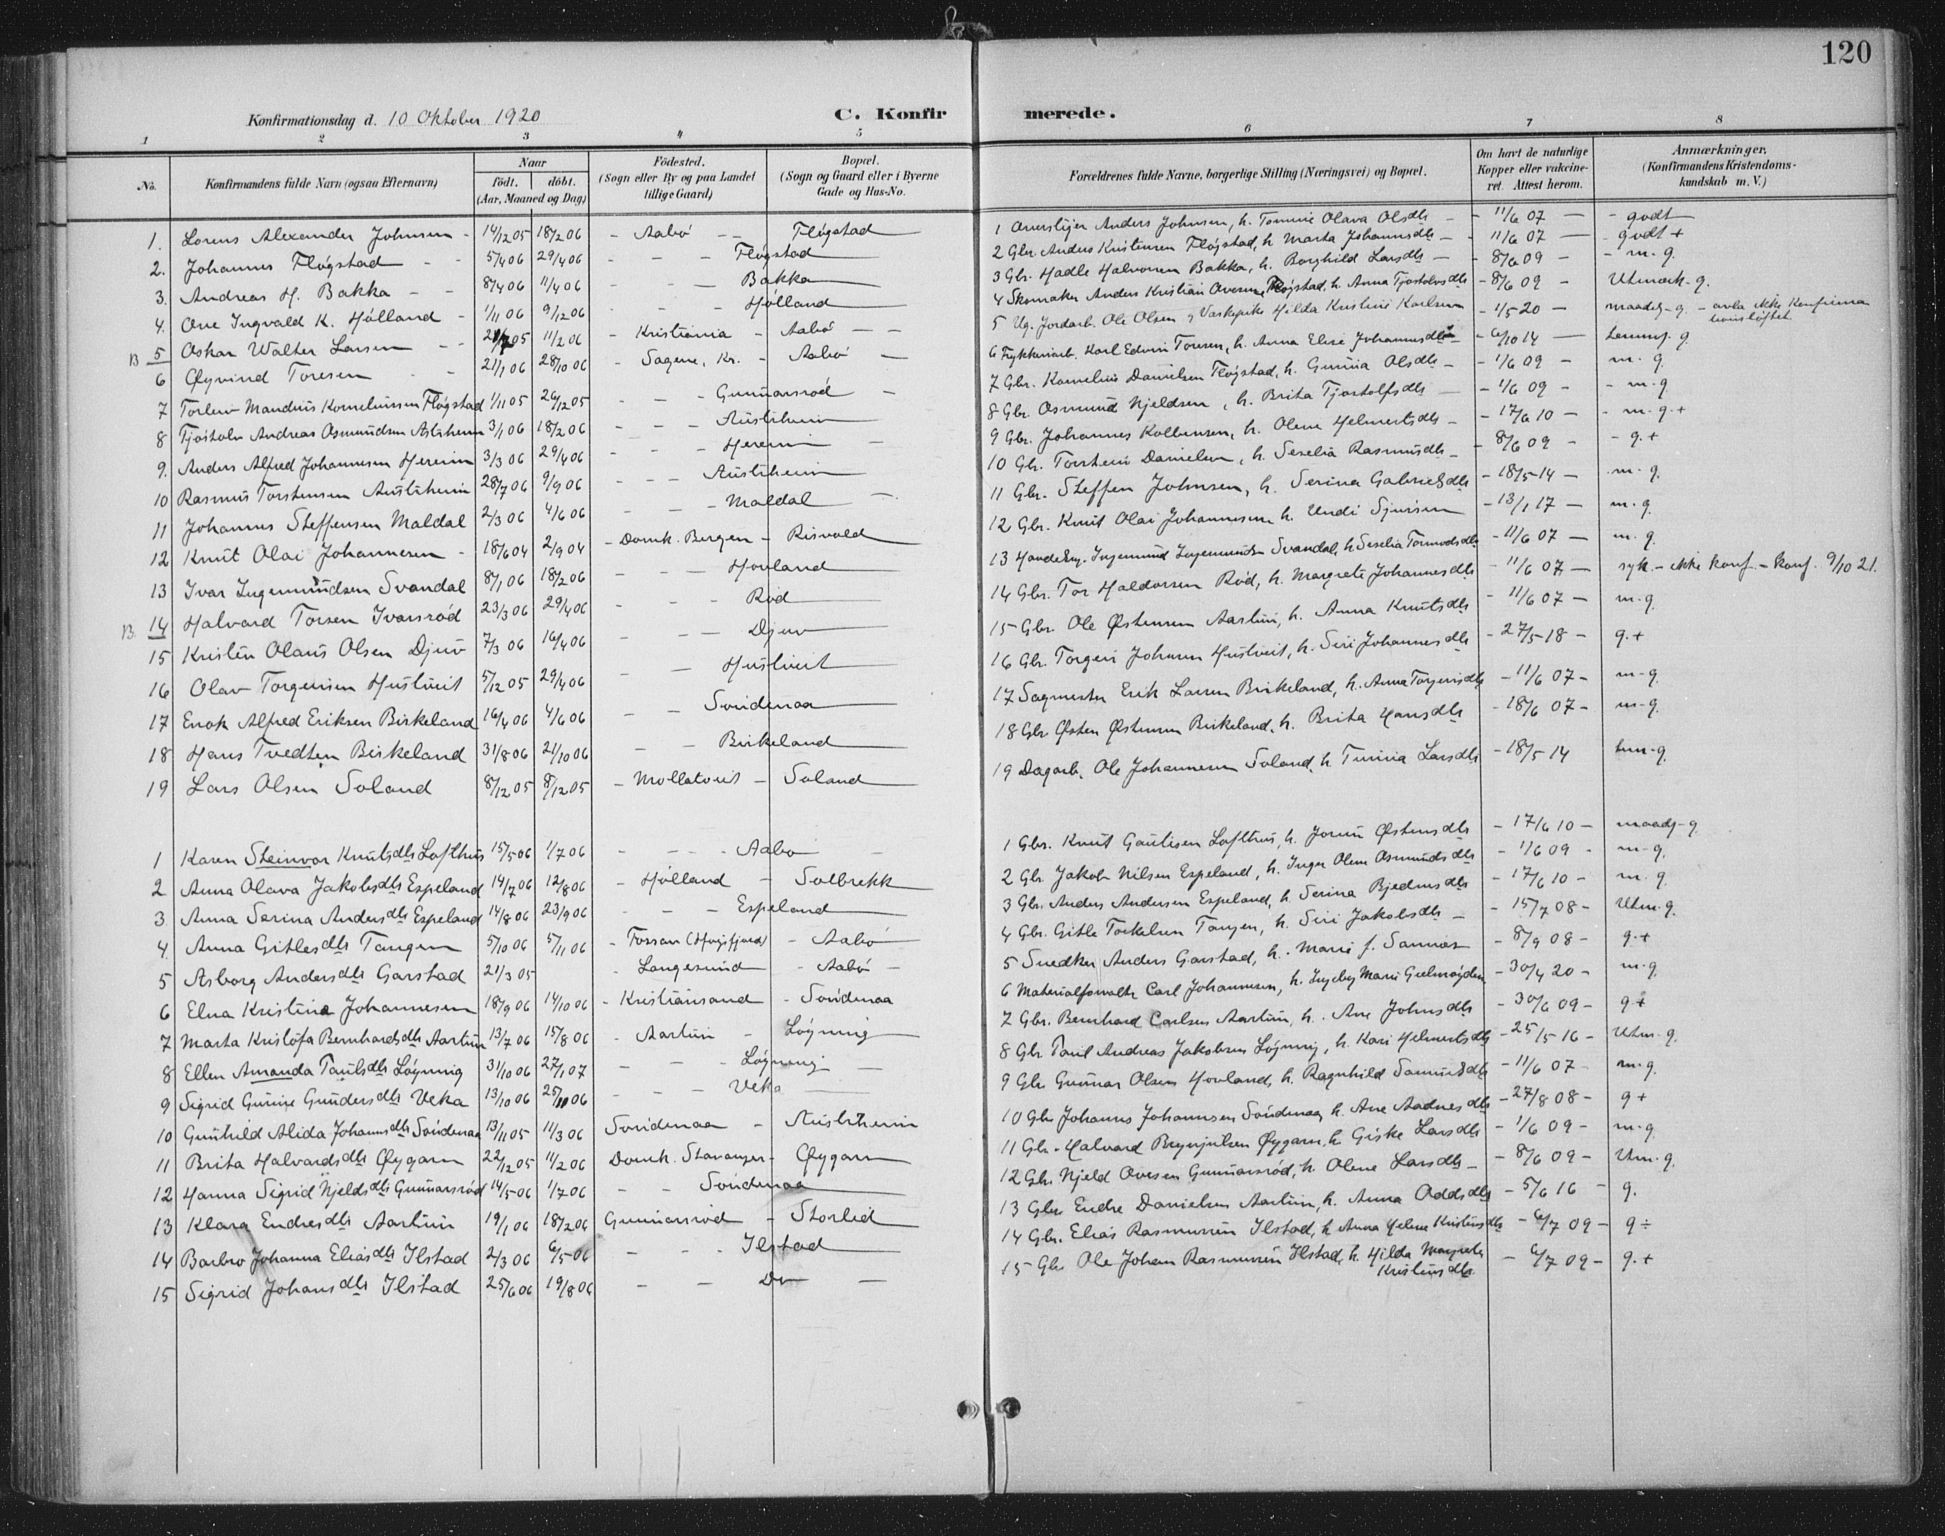 120
Konfirmationsdag d. 10 Oktober 1920
C. Konfirmerede.
1 2 3 4 5 6 7 8
No.
Konfirmandens fulde Navn (ogsaa Efternavn)
Naar
födt. döbt.
(Aar, Maaned og Dag)
Födested.
(Sogn eller By og paa Landet
tillige Gaard)
Bopæl.
(Sogn og Gaard eller i Byerne
Gade og Hus-No.
Forældrenes fulde Navne, borgerlige Stilling (Næringsvei) og Bopæl.
Om havt de naturlige
Kopper eller vakcine-
ret. Attest herom.
Anmærkninger.
(Konfirmandens Kristendoms-
kundskab m. V.)
1. Lorens Alexander Johnsen - 14/12 05 18/2 06 - Aabö - Flögstad
2. Johannes Flögstad - - 5/4 06 29/4 06 - - - Flögstad
3. Andreas H. Bakka - - 8/4 06 11/4 06 - - - Bakka
4. Ove Ingvald K. Hölland - 1/11 06 9/12 06 - - - Hölland
B 5 Oskar Walter Larsen - 05 11/2 06 - Kristiania - Aabö -
6 Øyvind Toresen - - 21/1 06 28/10 06 - Sagene, Kr. - Aabö -
7 Torleiv Mandius Korneliussen Flögstad 1/11 05 26/12 05 - - - Gunnarsröd
8 Tjostolv Andreas Osmundsen Austrheim 3/1 06 18/2 06 - - - Austrheim
9. Anders Alfred Johannesen Hereim 3/3 06 29/4 06 - - - Hereim -
10 Rasmus Torsteinsen Austrheim 28/7 06 9/9 06 - - - Austrheim
11 Johannes Steffensen Maldal 2/3 06 4/6 06 - - - Maldal -
12 Knut Olai Johannesen - 18/6 04 2/9 04 - Domk. Bergen - Risvold
13 Ivar Ingemundsen Svandal 8/1 06 18/2 06 - - - Hovland
B. 14 Halvard Torsen Ivarsröd 23/3 06 29/4 06 - - - Röd
15 Kristen Olaus Olsen Djuv 7/3 06 16/4 06 - - - Djuv
16 Olav Torgeirsen Hustveit 5/12 05 29/4 06 - - Hustveit
17 Enok Alfred Eriksen Birkeland 16/4 06 4/6 06 - - Söndenaa
18 Hans Tvedten Birkeland 31/8 06 21/10 06 - - Birkeland
19 Lars Olsen Soland 8/12 05 8/12 05 - Mollatveit - Soland
1 Karen Steinvor Knutsdtr Lofthus 15/5 06 1/7 06 - - - Aabö -
2 Anna Olava Jakobsdtr Espeland 14/7 06 12/8 06 - Hölland - Solbrekk
3 Anna Serina Andersdtr Espeland 14/8 06 23/9 06 - - - Espeland
4. Anna Gitlesdtr Tangen 5/10 06 5/11 06 - Fossan (Högsfjord) - Aabö
5 Asborg Andersdtr Garstad 21/3 05 - Langesund - Aabö -
6 Elna Kristine Johannesen 18/9 06 14/10 06 - Kristiansand - Söndenaa
7 Marta Kristofa Bernhardsdtr Aartun 13/7 06 15/8 06 - Aartun - Lögning
8 Ellen Amanda Paulsdtr Lögning 31/10 06 27/1 07 - - Lögning -
9 Sigrid Gurine Gundersdtr Veka 13/10 06 25/11 06 - - Veka
10 Gunhild Alida Johannsdtr Söndenaa 13/11 05 11/3 06 Söndenaa - Austrheim
11 Brita Halvardsdtr Øygarn 22/12 05 11/2 06 Domk. Stavanger - Øygarn
12 Hanna Sigrid Njeldsdtr Gunnarsröd 14/5 06 1/7 06 - - Söndenaa
13 Klara Endresdtr Aartun 19/1 06 18/2 06 Gunnarsröd - Storlid
14 Barbro Johanna Eliasdtr Ilstad 2/3 06 6/5 06 - - - Ilstad
15 Sigrid Johansdtr Ilstad 25/6 06 19/8 06 - - Do -
1 Anders Johnsen, h. Tomine Olava Olsdtr - - 11/6 07 - - godt
2 Gbr. Anders Kristensen Flögstad, h. Marta Johannsdtr - - 11/6 07 - - godt +
3 Gbr. Hadle Halvorsen Bakka, h. Borghild Larsdtr - - 8/6 09 - - m. g.
4 Skomaker Anders Kristian Oversen Flögstad, h. Anna Tjostolvsdtr - 8/6 09 - Utmærk. g.
5 Ug. Jordarb. Ole Olsen og Vaskepike Hilda Kristine Karlsen - 1/5 20 - maadel. g. - avla ikke Konfirma
tionsløftet
6 Karl Edvin Toresen, h. Anna Elise Johannesdtr - 6/10 14 - temmel. g
7 Gbr. Kornelius Danielsen Flögstad, h. Gunna Olsdtr - - 1/6 09 - m. g.
8 Gbr. Osmund Njeldsen, h. Brita Tjostolfsdtr - 1/6 09 - - m. g.
9 Gbr. Johannes Kolbensen, h. Olene Helmertsdtr - - 17/6 10 - - m. g. +
10 Gbr. Torstein Danielsen, h. Seselia Rasmusdtr - 8/6 09 - - g. +
11 Gbr. Steffen Johnsen, h. Serina Gabrielsdtr - 18/5 14 - m. g.
12 Gbr. Knut Olai Johannesen h. Undi Sjursen - 13/1 17 - m. g.
13 Ingemund Ingemundsen Svandal, h. Seselia Tormodsdtr - 11/6 07 - m. g.
14 Gbr. Tor Haldorsen Röd, h. Margrete Johannesdtr - 11/6 07 - syk. - ikke konf. - konf. 9/10 21.
15 Gbr. Ole Østensen Aartun, h. Anna Knutsdtr - 11/6 07 - m. g.
16 Gbr. Torgeir Johnsen Hustveit, h. Siri Johannesdtr - 27/5 18 - g. +
17 Sagmester Erik Larsen Birkeland, h. Anna Torgeirsdtr - 11/6 07 - m. g.
18 Gbr. Østen Østensen Birkeland, h. Brita Hansdtr - 18/6 07 - m. g.
19 Dagarb. Ole Johannesen Soland, h. Turina Larsdtr - 18/5 14 tem. g.
1 Gbr. Knut Gautesen Lofthus, h. Jorun Østensdtr - 17/6 10 - maadl. g
2 Gbr. Jakob Nilsen Espeland, h. Inger Olene Osmundsdtr - 1/6 09 - m. g.
3 Gbr. Anders Andersen Espeland, h. Serina Bjednesdtr - 17/6 10 - m. g.
4 Gbr. Gitle Torkelsen Tangen, h. Siri Jakobsdtr - - 15/7 08 - Utm. g.
5 Snedker Anders Garstad, h. Marie f. Sannæs - 8/9 08 - g. +
6 Materialforvalter Carl Johannesen, h. Ingebg Marie - 30/4 20 - m. g.
7 Gbr. Bernhard Carlsen Aartun, h. Ane Johnsdtr - 30/6 09 - g +
8 Gbr Paul Andreas Jakobsen Lögning, h. Kari Helmertsdtr - 25/5 16 - Utm. g.
9 Gbr Gunnar Olsen Hovland, h. Ragnhild Samuelsdtr - 11/6 07 - m. g.
10 Gbr Johannes Johannesen Söndenaa, h. Ane Aadnesdtr - 27/8 08 - g +
11 Gbr. Halvard Brynjulsen Øygarn, h. Giske Larsdtr - 1/6 09 - m. g
12 Gbr. Njeld Oversen Gunnarsröd, h. Olene Larsdtr - - 8/6 09 - Utm. g.
13 Gbr Endre Danielsen Aartun, h. Anna Oddsdtr - 5/6 16 - g.
14 Gbr. Elias Rasmussen Ilstad, h. Anna Helene Kristensdtr - 6/7 09 - g ÷
15 Gbr Ole Johan Rasmussen Ilstad, h. Hilda Margrete - 6/7 09 - g. +
Kristensdtr.